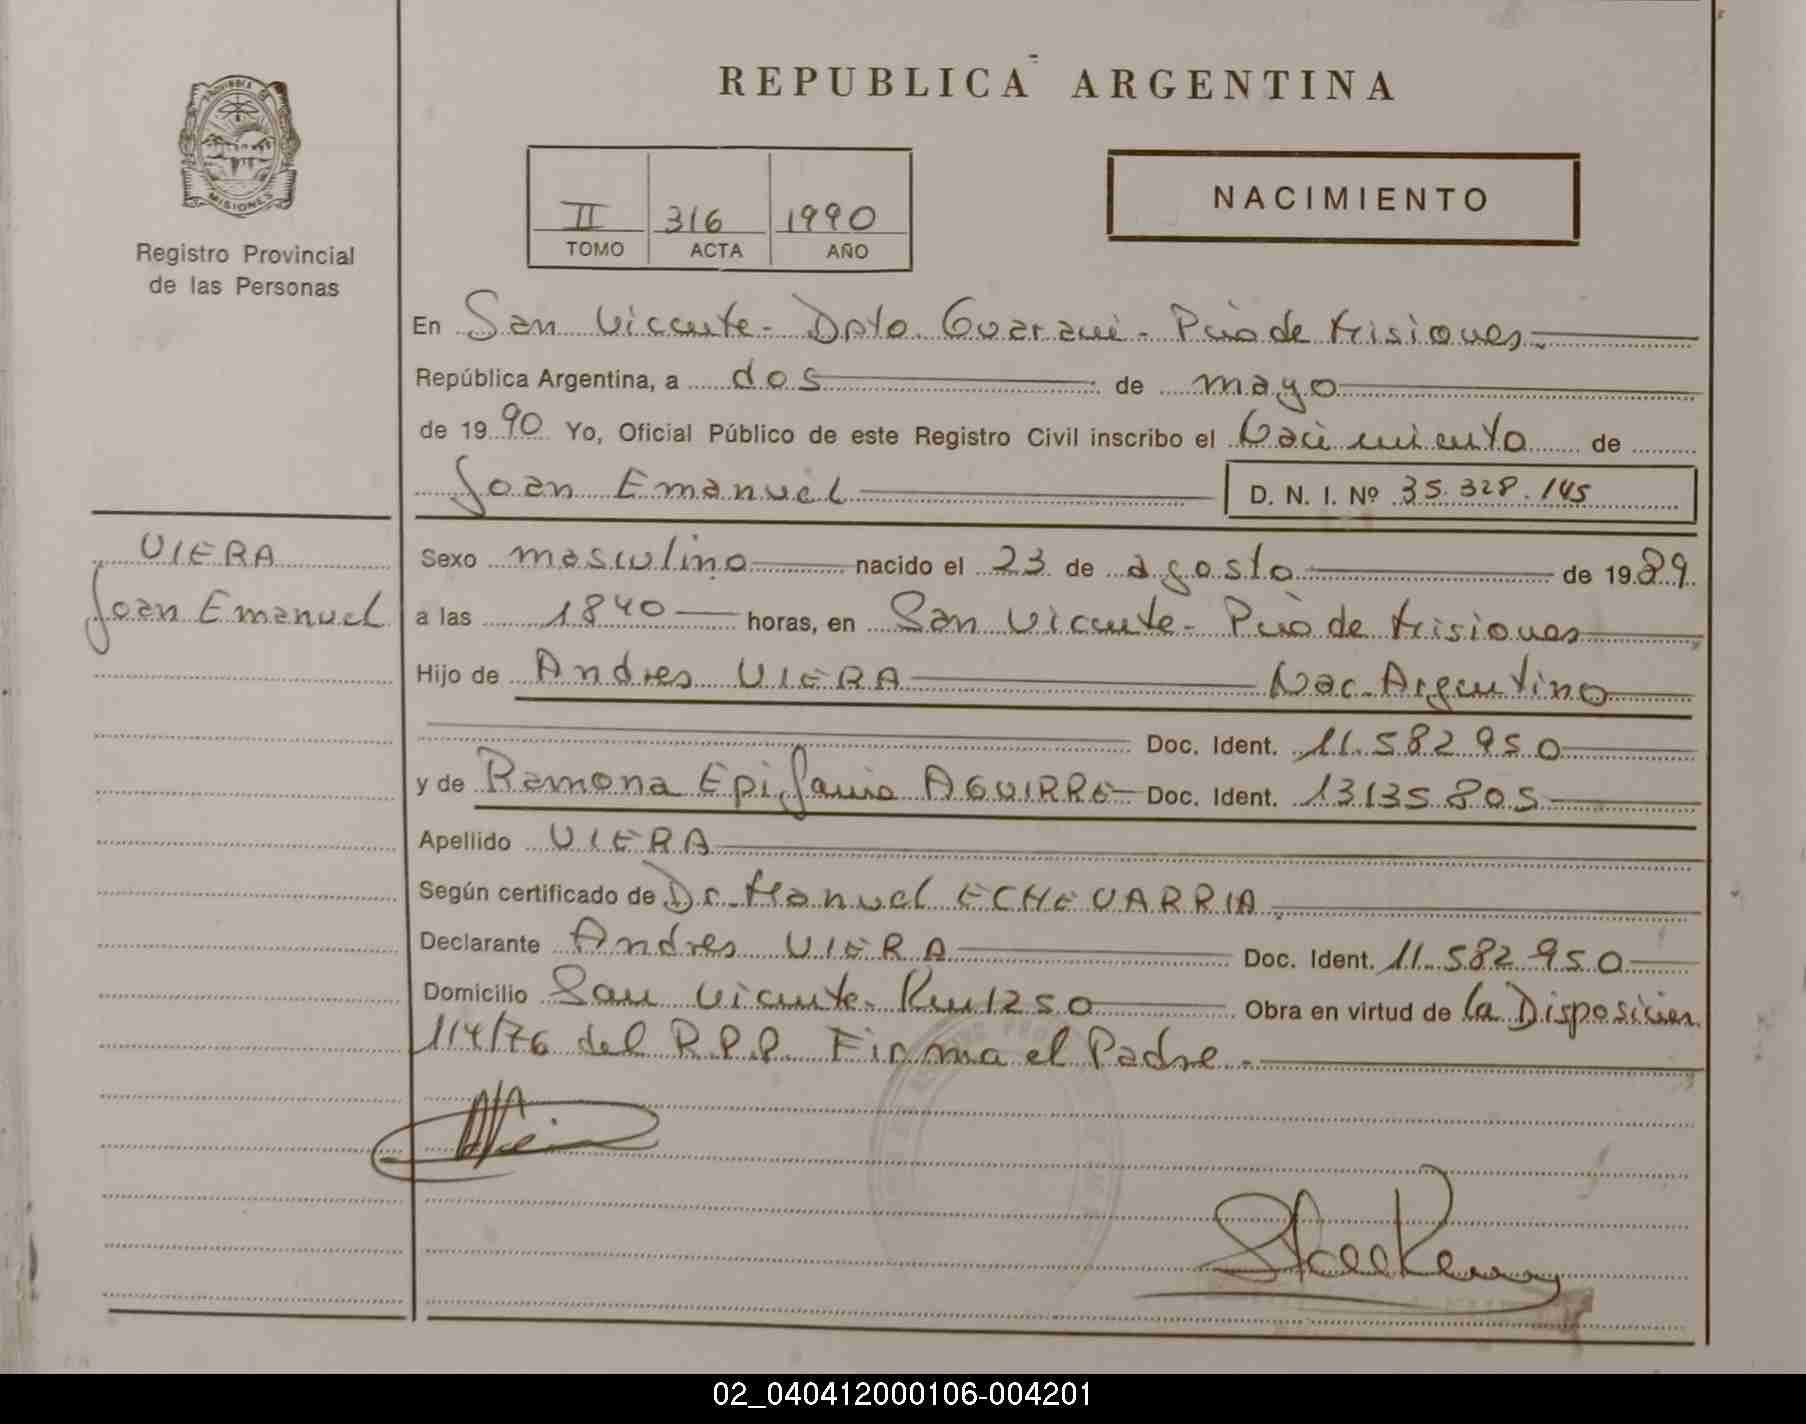 REPUBLICA ARGENTINA
PROVINCIA DE
MISIONES
Registro Provincial
de las Personas
II 316 1990
TOMO ACTA AÑO
NACIMIENTO
En San Vicente - Dpto. Guarani - Pcia de Misiones.
República Argentina, a dos de mayo
de 1990 Yo, Oficial Público de este Registro Civil inscribo el Nacimiento de
Joan Emanuel D. N. I. Nº 35.328.145
VIERA
Joan Emanuel
Sexo masculino nacido el 23 de agosto de 1989.
a las 1840 horas, en San Vicente - Pcia de Misiones
Hijo de Andres VIERA Nac. Argentino
Doc. Ident. 11.582.950
y de Ramona Epifania AGUIRRE Doc. Ident. 13135.805
Apellido VIERA
Según certificado de Dr. Manuel ECHEVARRIA
Declarante Andres VIERA Doc. Ident. 11.582.950
Domicilio San Vicente - Km 1250 Obra en virtud de la Disposicion
114/76 del R.P.P. Firma el Padre.
02_040412000106-004201